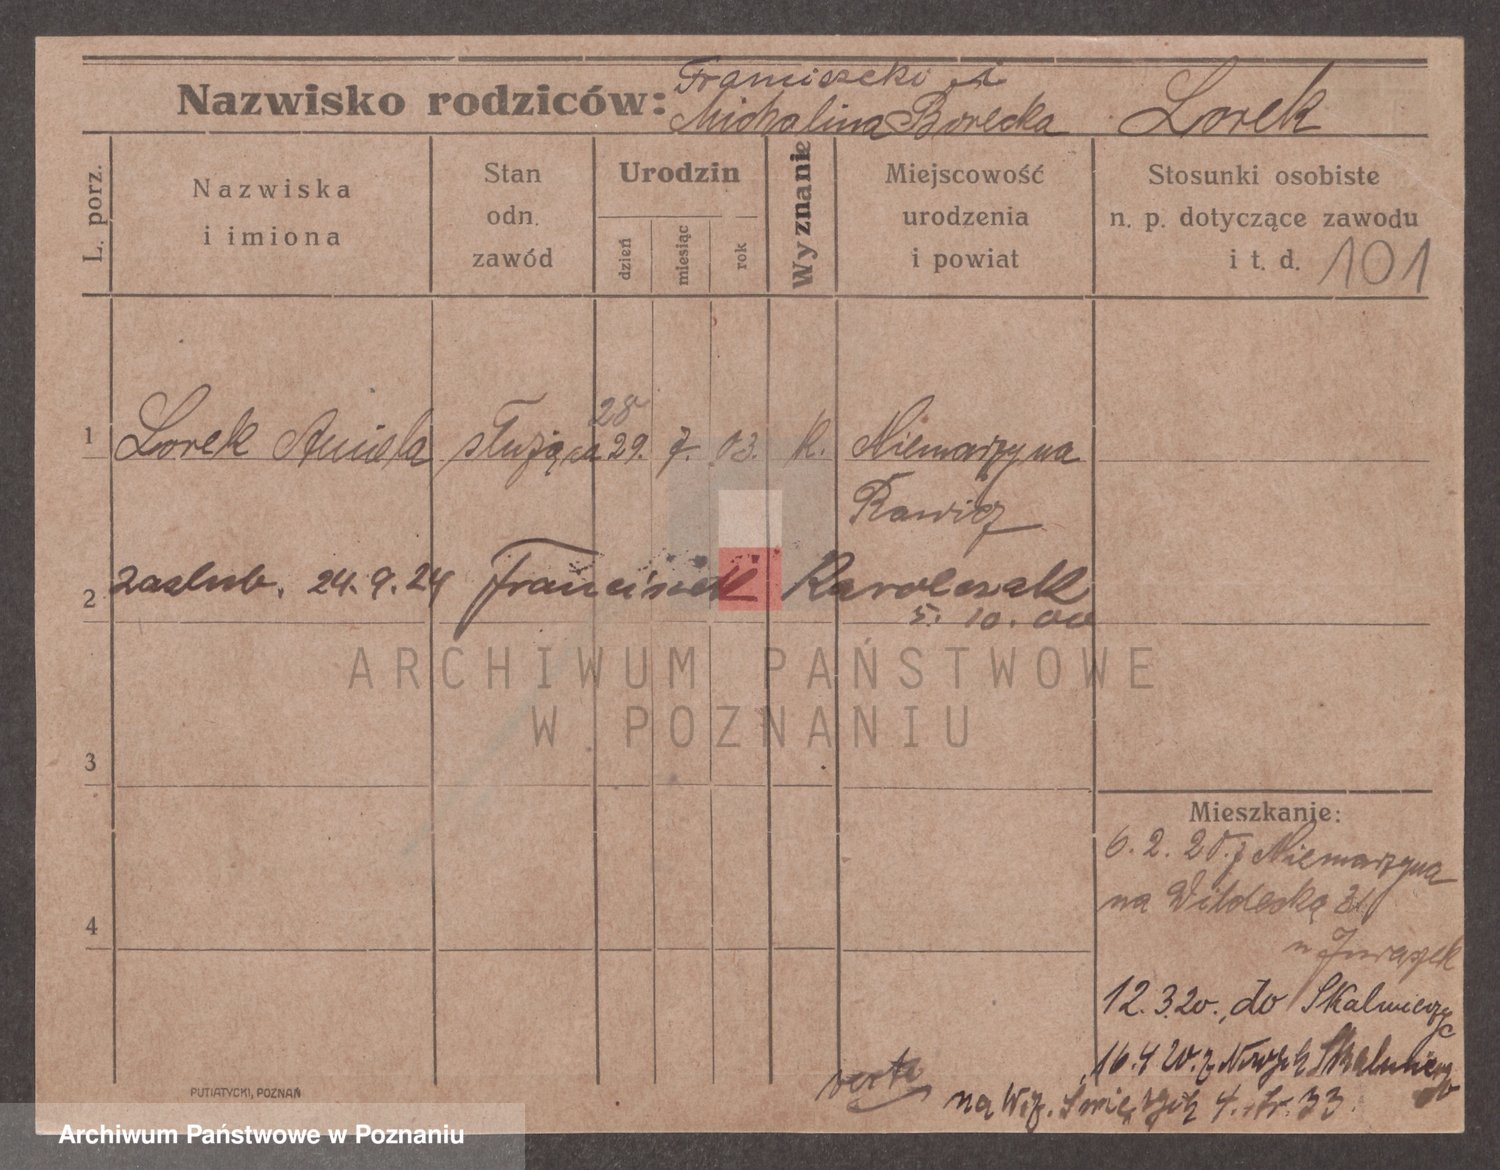 Franciszek i
Nazwisko rodziców: Michalina Borecka Lorek
L. porz.
Nazwiska
i imiona
Stan
odn.
zawód
Urodzin
dzień
miesiąc
rok
Wyznanie
Miejscowość
urodzenia
i powiat
Stosunki osobiste
n. p. dotyczące zawodu
i t. d. 101
28
1 Lorek Aniela służąca 29. 7. 03. k. Niemarzyna
Rawicz
2 zaślub. 24.9.24 Franciszek Karolczak
5. 10. 00
ARCHIWUM PAŃSTWOWE
W POZNANIU
3
Mieszkanie:
6. 2. 20. z Niemarzyna
na Wildecką
4
u
12.3.20., do
16.4.20. z
verte
na 4. tr. 33.
PUTIATYCKI, POZNAŃ
Archiwum Państwowe w Poznaniu